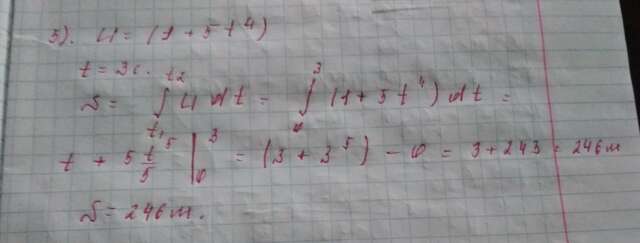 3). U = (1 + 5t⁴)
t = 3c.
S = ∫ₜ₁ᵗ² U dt = ∫₀³ (1 + 5t⁴) dt =
t + 5 t⁵/5 |₀³ = (3 + 3⁵) - 0 = 3 + 243 = 246м
S = 246м.